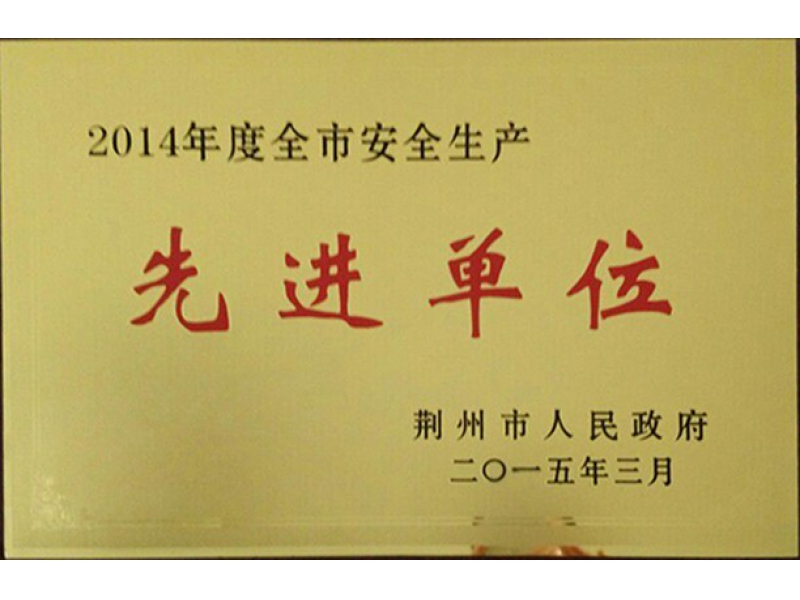 2014年度全市安全生产
先进单位
荆州市人民政府
二〇一五年三月